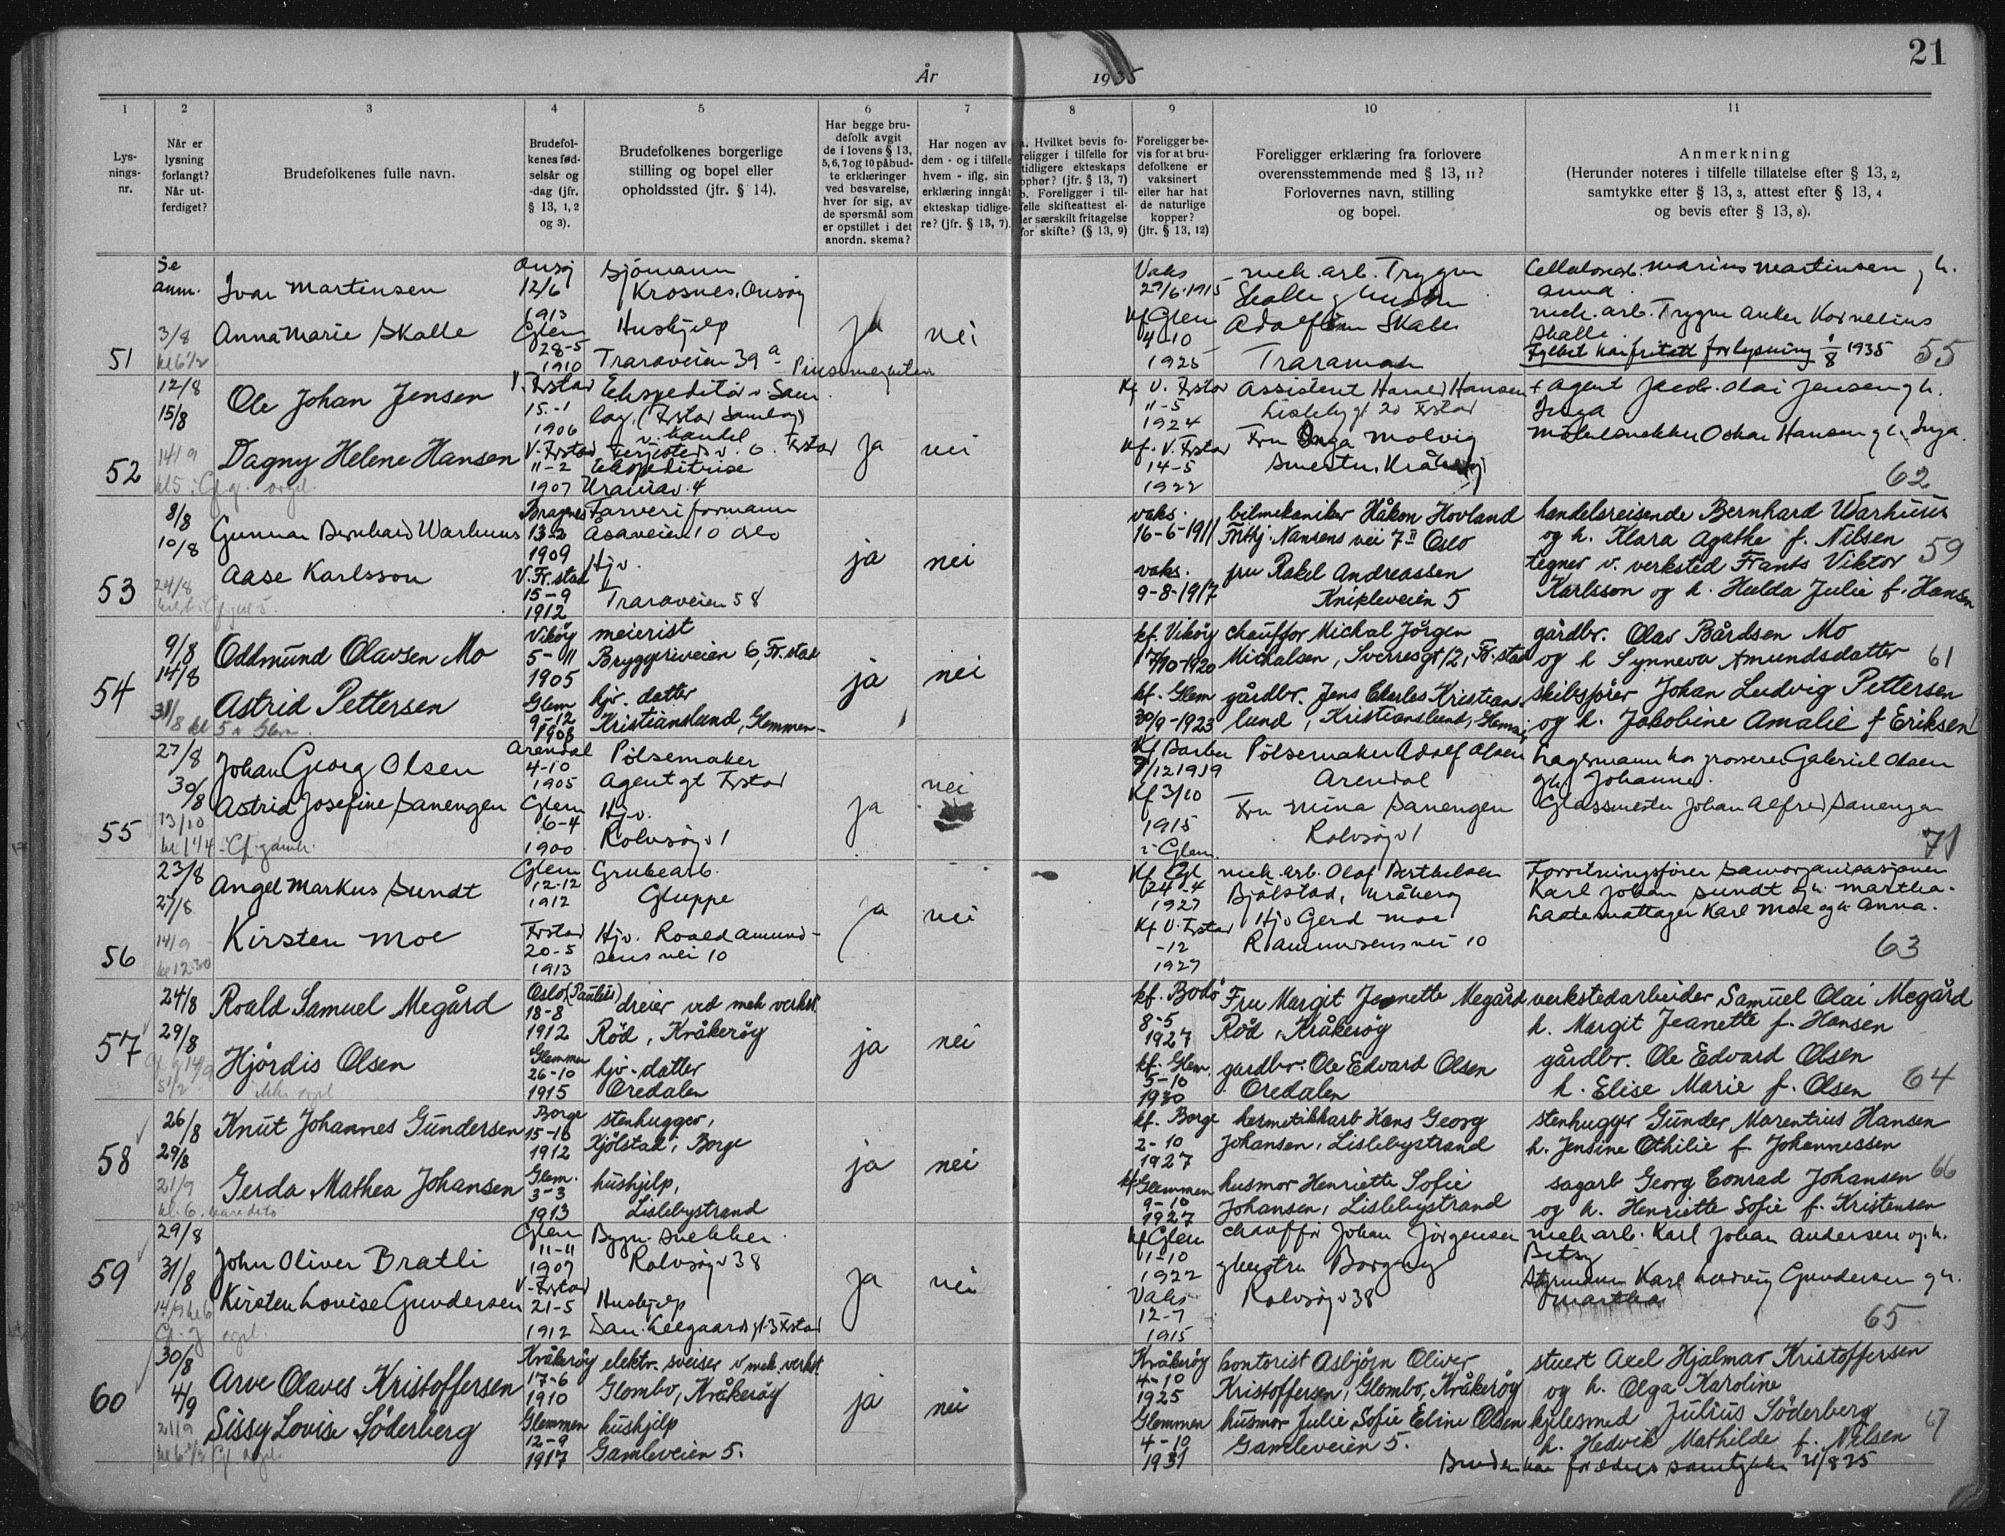 21
År 1935
1 2 3 4 5 6 7 8 9 10 11
Lys-
nings-
nr.
Når er
lysning
forlangt?
Når ut-
ferdiget?
Brudefolkenes fulle navn.
Brudefol-
kenes fød-
selsår og
-dag (jfr.
§ 13, 1, 2
og 3).
Brudefolkenes borgerlige
stilling og bopel eller
opholdssted (jfr. § 14).
Har begge bru-
defolk avgit
de i lovens § 13,
5, 6, 7 og 10 påbud-
te erklæringer
ved besvarelse,
hver for sig, av
de spørsmål som
er opstillet i det
anordn. skema?
Har nogen av
dem - og i tilfelle
hvem - iflg. sin
erklæring inngått
ekteskap tidlige-
re? (jfr. § 13, 7).
a. Hvilket bevis fo-
religger i tilfelle for
tidligere ekteskaps
ophør? (jfr. § 13, 7)
b. Foreligger i til-
felle skifteattest el-
ler særskilt fritagelse
for skifte? (§ 13, 9)
Foreligger be-
vis for at bru-
defolkene er
vaksinert
eller har hat
de naturlige
kopper?
(jfr. § 13, 12)
Foreligger erklæring fra forlovere
overensstemmende med § 13, 11?
Forlovernes navn, stilling
og bopel.
Anmerkning
(Herunder noteres i tilfelle tillatelse efter § 13, 2,
samtykke efter § 13, 3, attest efter § 13, 4
og bevis efter § 13, 8).
51
Se
anm.
3/8
kl 6 1/2
Ivar Martinsen
Anna Marie Skalle
Onsøy
12/6
1913
Glem
28-5
1910
Sjømann
Krosnes, Onsøy
Hushjelp
Traraveien 39a
ja
nei
Vaks
29/6-1915
kf Glem
4-10
1925
mek. arb. Trygve
Skalle
Traraveien
Marius Martinsen g h.
Anna.
mek. arb. Trygve Anker Kornelius
Skalle.
fritatt for lysning 1/8 1935
55
52
12/8
15/8
14/9
kl 5
Ole Johan Jensen
Dagny Helene Hansen
V. Frstad
15-1
1906
V. Frstad
11-2
1907
Ekspeditør v. Sam
lag. (Frstad Samlag)
Ekspeditrise
Uraniav. 4
ja
nei
Kf V. Frstad
11-5
1924
kf. V. Frstad
14-5
1922
Assistent Harald Hansen
Lislebygt 20 Frstad
Fru Inga Molvig
Kråkerøy
+ Agent Jacob Olai Jensen g h.
Inga
Møbelsnekker Oskar Hansen g h. Inga.
62
53
8/8
10/8
24/8
Gunnar Bernhard Warhuus
Aase Karlsson
Bragnes
13-2
1909
V. Fr.stad
15-9
1912
Farveriformann
Asaveien 10 Oslo
Hjv.
Traraveien 58
ja
nei
vaks.
16-6-1911
vaks.
9-8-1917
bilmekaniker Håkon Hovland
Fritj. Nansens vei 7II Oslo
fru Rakel Andreassen
Knipleveien 5
handelsreisende Bernhard Warhuus
og h. Klara Agathe f. Nilsen
tegner v. verksted Frants Viktor
Karlsson og h. Hulda Julie f. Hansen
59
54
9/8
14/8
31/8 kl
5 i Glem.
Oddmund Olavsen Mo
Astrid Pettersen
Vikøy
5-11
1905
Glem
9-12
1906
meierist
Bryggeriveien 6, Fr.stad
hjv. datter
Kristianslund, Glemmen
ja
nei
kf. Vikøy
17/10-1920
kf. Glem
30/9-1923
chauffør Michal Jörgen
Michalsen, Sverresgt 12, Fr.stad
gårdbr. Jens Charles Kristians-
lund, Kristianslund, Glemm.
gårdbr. Olav Bårdsen Mo
og h Synneva Amundsdatter
skibsfører Johan Ludvig Pettersen
og h. Jakobine Amalie f Eriksen
61
55
27/8
30/8
13/10
Johan Georg Olsen
Astrid Josefine Sanengen
Arendal
4-10
1905
Glem
6-4
1900
Pølsemaker
Agentgt Frstad
Hjv.
Rolvsøyv 1
ja
nei
Kf Barbu
7/12 1919
Kf 3/10
1915
i Glem
Pølsemaker Adolf Olsen
Arendal
Fru Mina Sanengen
Rolvsøyv 1
Lagermann hos grosserer Gabriel Olsen
g h. Johanne.
Glassmester Johan Alfred Sanengen
71
56
23/8
27/8
14/9
kl 12.30
Angel Markus Sundt
Kirsten Moe
Glem
12-12
1912
Frstad
20-5
1913
Grubearb.
Gluppe
Hjv. Roald Amund-
sens vei 10
ja
nei
Kf Gl
24-4
1927
Kf V. Frstad
-12
1927
mek. arb. Olaf Berthelsen
Bjølstad, Kråkerøy
Hjv Gerd Moe
R. Amundsens vei 10
Forretningsfører Samorganisasjonen
Karl Johan Sundt g h. Martha.
Karl Moe og h Anna.
63
57
24/8
29/8
14/9
5 1/2
Roald Samuel Megård
Hjördis Olsen
ikke orgel
Oslo (Paulus)
18-8
1912
Glemmen
26-10
1915
dreier ved mek verkst.
Rød, Kråkerøy
hjv. datter
Oredalen
ja
nei
kf. Bodø
8-5
1927
kf. Glem.
5-10
1930
Fru Margit Jeanette Megård
Rød, Kråkerøy
gardbr. Ole Edvard Olsen
Oredalen
verkstedarbeider Samuel Olai Megård
h. Margit Jeanette f. Hansen
gårdbr. Ole Edvard Olsen
h. Elise Marie f. Olsen
64
58
26/8
29/8
21/9
kl. 6.
Knut Johannes Gundersen
Gerda Mathea Johansen
Borge
15-10
1912
Glem.
3-3
1913
stenhugger,
Kjølstad, Borge
hushjelp,
Lislebystrand
ja
nei
kf. Borge
2-10
1927
kf Glemmen
9-10
1927
hermetikkarb Hans Georg
Johansen, Lislebystrand
husmor Henriette Sofie
Johansen, Lislebystrand
stenhugger Gunder Marentius Hansen
h. Jensine Othilie f. Johannessen
sagarb Georg Conrad Johansen
og h. Henriette Sofie f. Kristensen
66
59
29/8
31/8
14/9 kl 6
John Oliver Bratli
Kirsten Lovise Gundersen
Glem
11-11
1907
V. Frstad
21-5
1912
Bygn. snekker.
Rolvsøyv 38
Hushjelp
3 Frstad
ja
nei
kf Glem
1-10
1922
Vaks
12-7
1915
chauffør Johan Jørgensen
g hustru Borgny
Rolvsøyv 38
mek arb. Karl Johan Andersen og h.
Betsy
Styrmann Karl Ludvig Gundersen g h.
Martha
65
60
30/8
4/9
21/9
Arve Olaves Kristoffersen
Sissy Lovise Söderberg
Kråkerøy
17-6
1910
Glemmen
12-9
1917
elektr. sveiser v mek. verkst.
Glombo, Kråkerøy
hushjelp
Gamleveien 5.
ja
nei
Kråkerøy
4-10
1925
Glemmen
4-10
1931
kontorist Asbjørn Oliver
Kristoffersen, Glombo, Kråkerøy
husmor Julie Sofie Eline Olsen
Gamleveien 5.
stuert Axel Hjalmar Kristoffersen
og h. Olga Karoline
kjelesmed Julius Söderberg
h. Hedvik Mathilde f. Nilsen
67
Bruden har foreldres samtykke 21/8 35